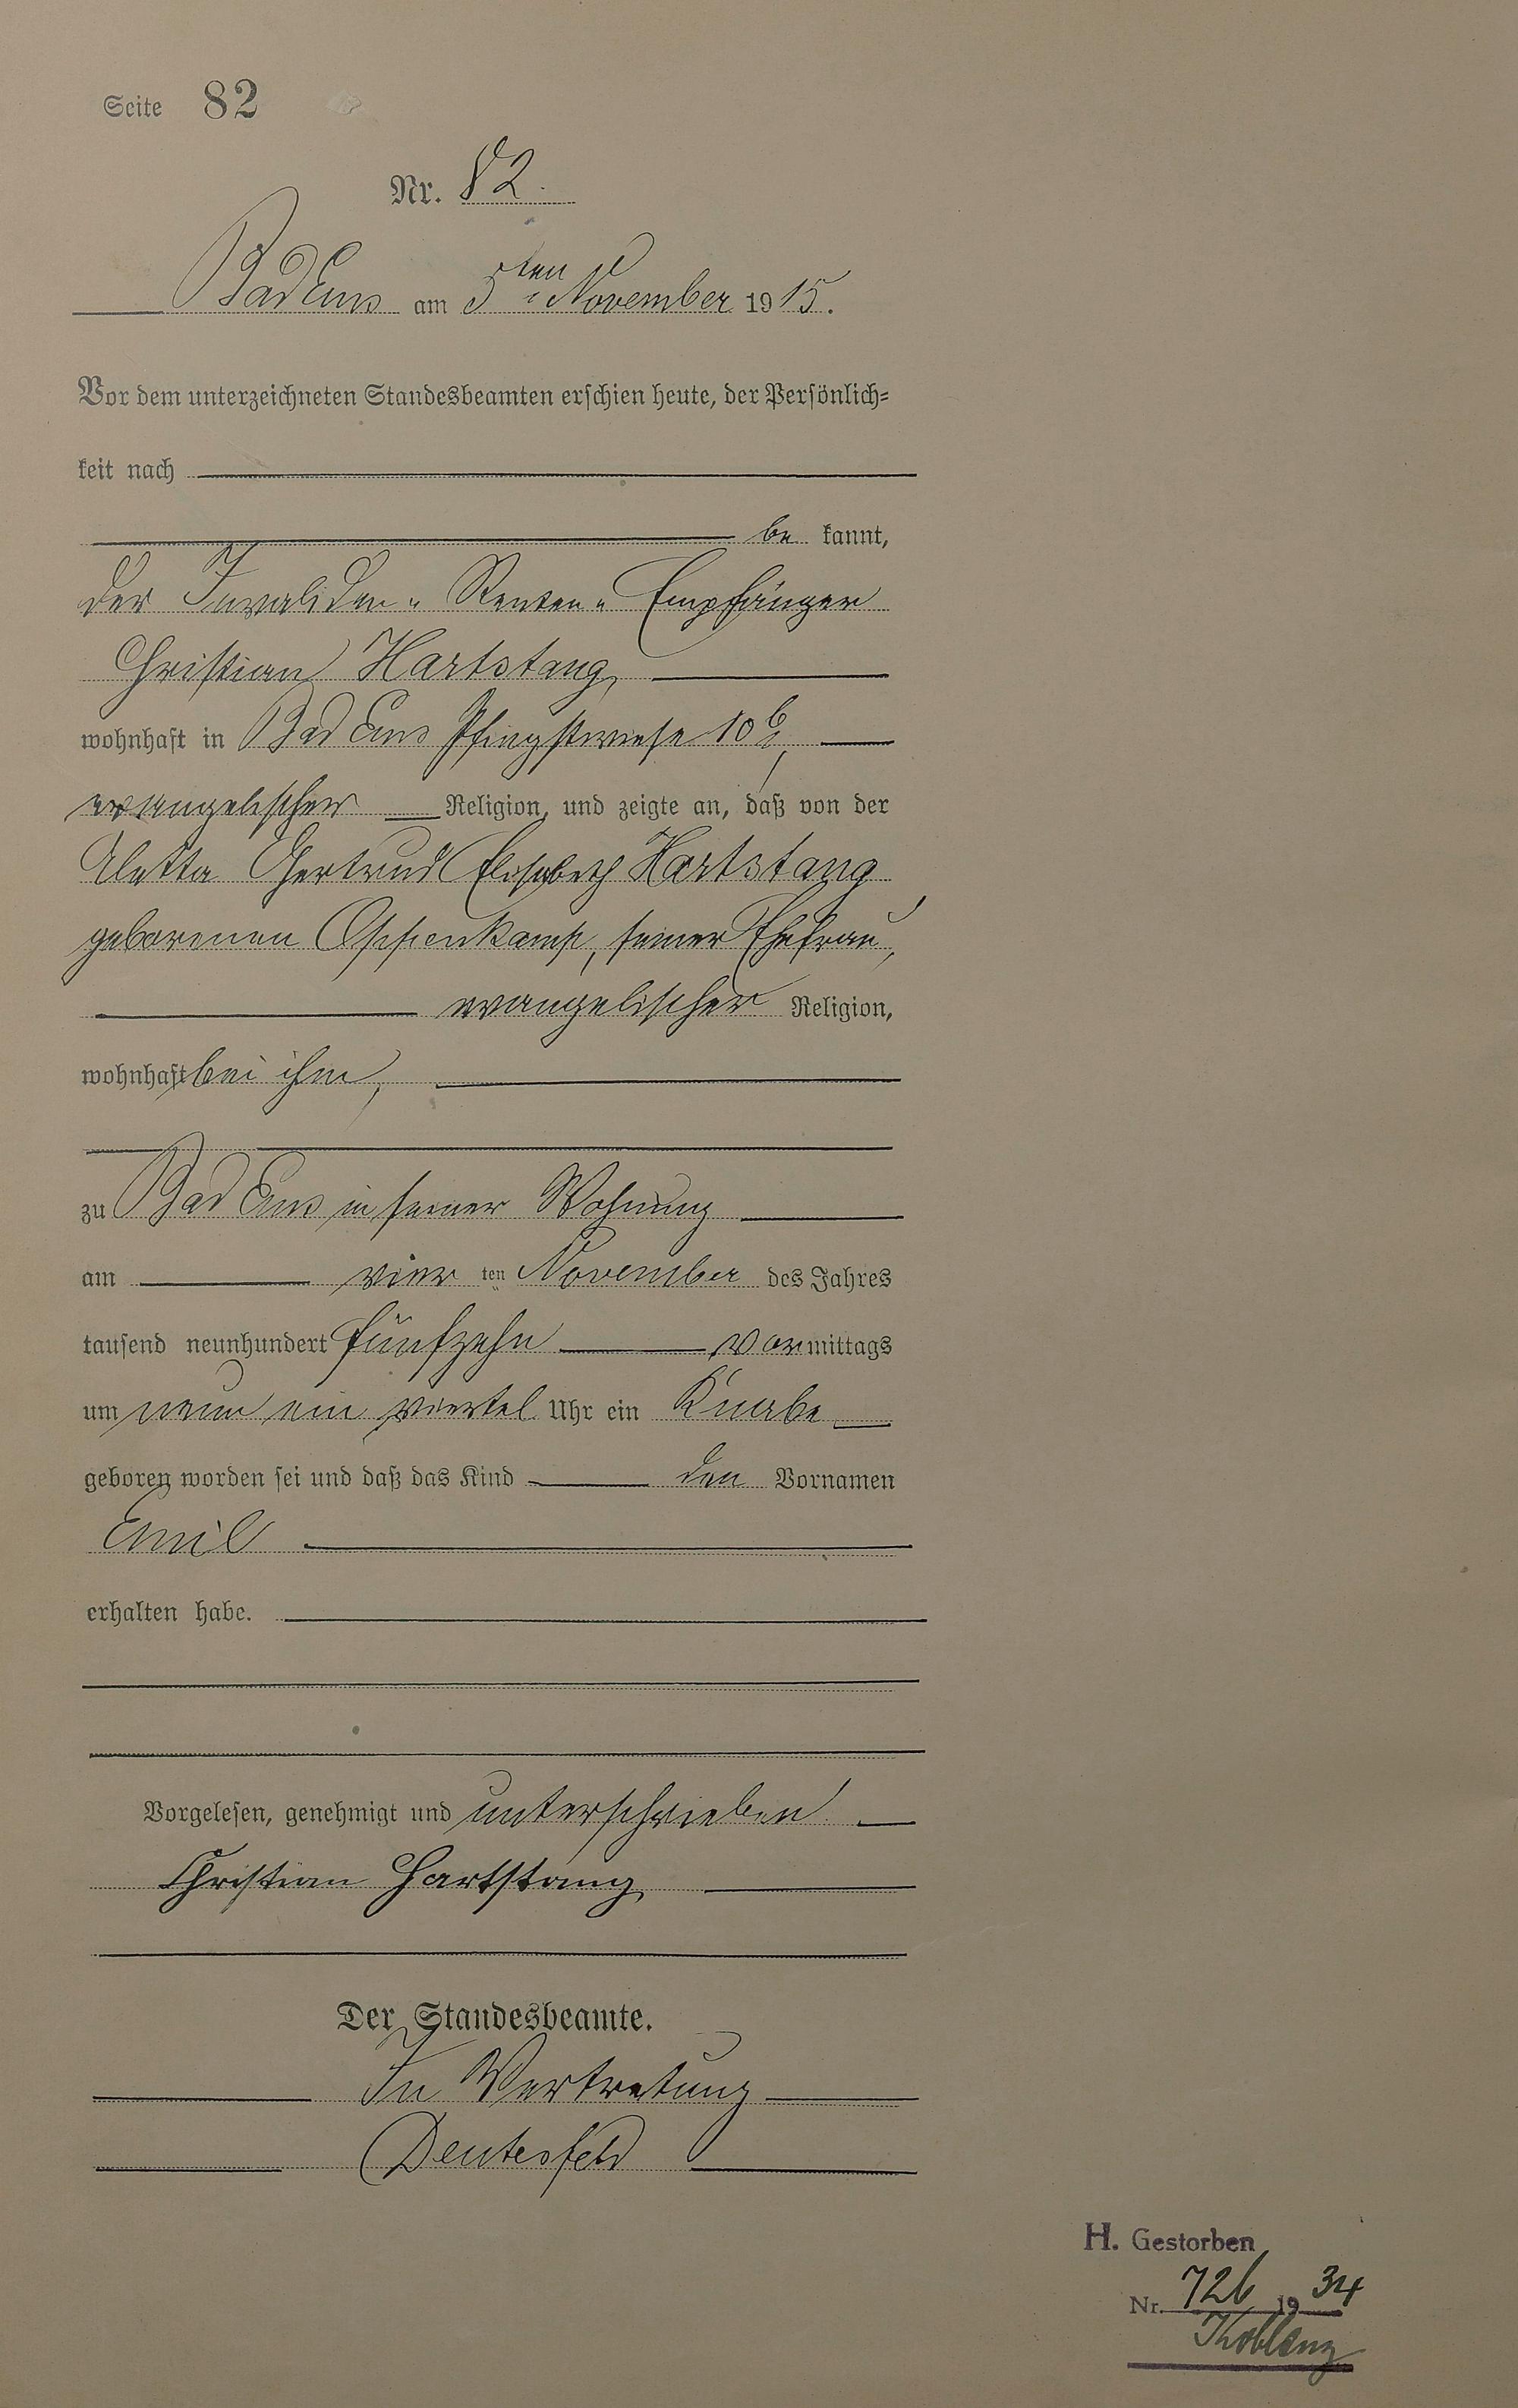 Seite 82
Nr. 82.
Bad Ems am 5ten November 1915.
Vor dem unterzeichneten Standesbeamten erschien heute, der Persönlich=
keit nach
be kannt,
der Invaliden- Renten- Empfänger
Christian Hartstang,
wohnhaft in Bad Ems Pfingstwiese 10b,
evangelischer Religion, und zeigte an, daß von der
Aletta Gertrud Elisabeth Hartstang
geborenen Oppenkamp, seiner Ehefrau,
evangelischer Religion,
wohnhaft bei ihm,
zu Bad Ems in seiner Wohnung
am vier ten November des Jahres
tausend neunhundert fünfzehn vormittags
um neun ein viertel Uhr ein Knabe
geboren worden sei und daß das Kind den Vornamen
Emil
erhalten habe.
Vorgelesen, genehmigt und unterschrieben
Christian Hartstang
Der Standesbeamte.
In Vertretung
Deutesfeld
H. Gestorben
Nr. 726 1934
Koblenz